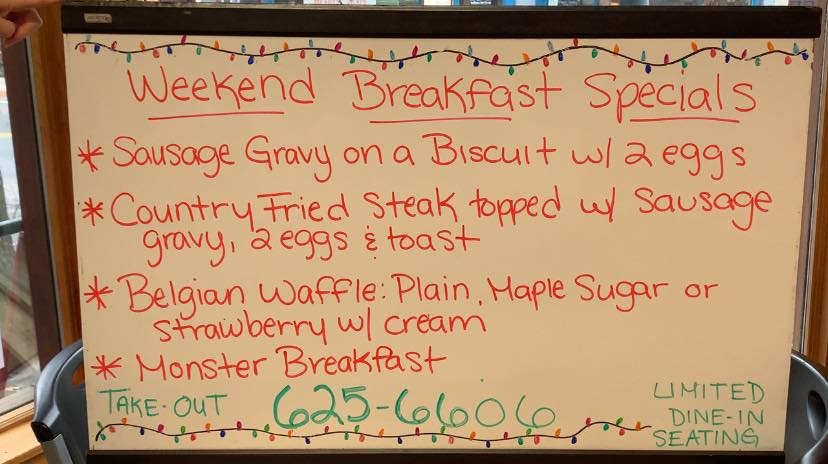 Weekend Breakfast Specials
* Sausage Gravy on a Biscuit w/ 2 eggs
* Country Fried Steak topped w/ Sausage
gravy, 2 eggs & toast
* Belgian Waffle: Plain, Maple Sugar or
strawberry w/ cream
* Monster Breakfast
TAKE-OUT 625-6606
LIMITED
DINE-IN
SEATING